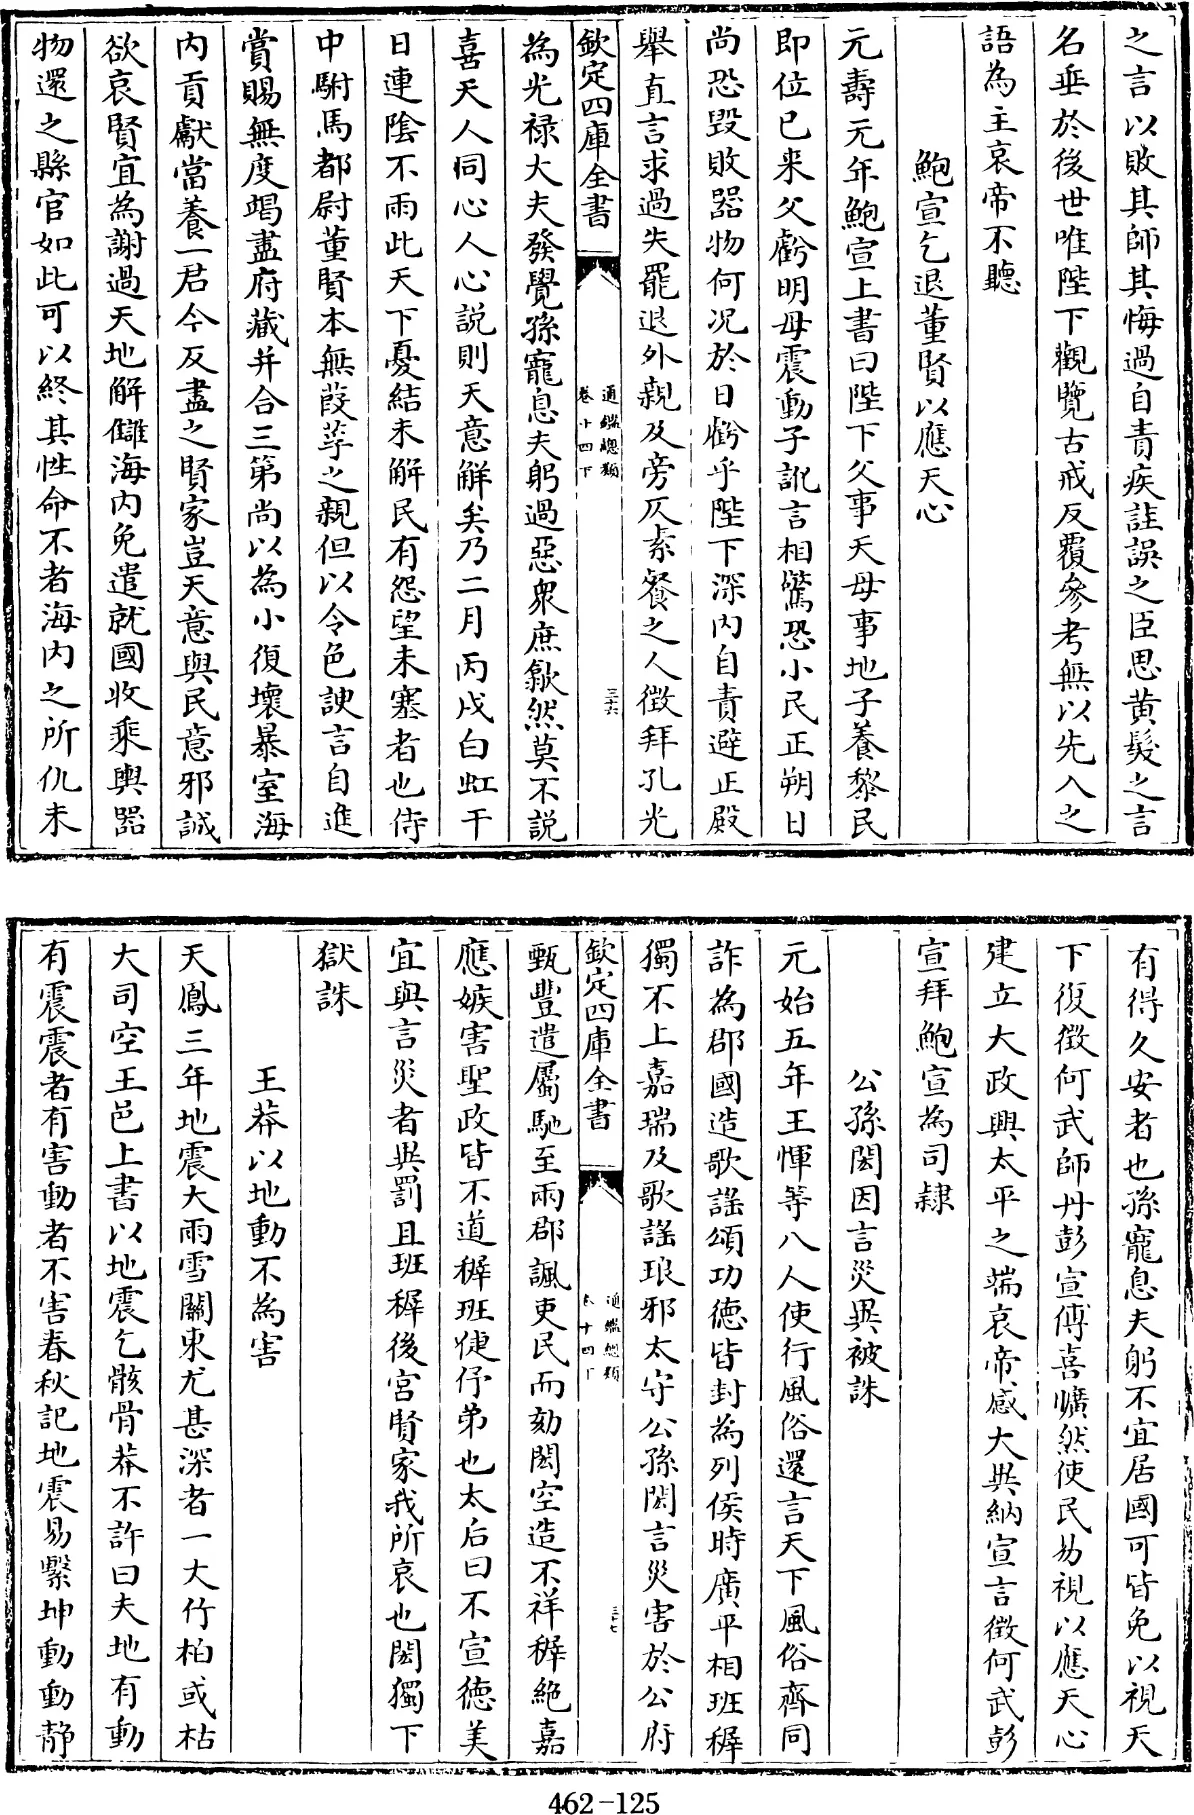 之言以敗其師其悔過自責疾詿誤之臣思黄髮之言
名垂於後世唯陛下觀覽古戒反覆參考無以先入之
語為主哀帝不聽
鮑宣乞退董賢以應天心
元壽元年鮑宣上書曰陛下父事天母事地子養黎民
即位已来父虧明母震動子訛言相驚恐小民正朔日
尚恐毁敗器物何況於日虧乎陛下深内自責避正殿
舉直言求過失罷退外親及旁仄素餐之人徵拜孔光
欽定四庫全書
通鑑總類
卷十四下
三十六
為光禄大夫發覺孫寵息夫躬過惡衆庶歙然莫不說
喜天人同心人心說則天意解矣乃二月丙戌白虹干
日連陰不雨此天下憂結未解民有怨望未塞者也侍
中駙馬都尉董賢本無葭莩之親但以令色諛言自進
賞賜無度竭盡府藏并合三第尚以為小復壞暴室海
内貢獻當養一君今反盡之賢家豈天意與民意邪誠
欲哀賢宜為謝過天地解讎海内免遣就國收乘輿器
物還之縣官如此可以終其性命不者海内之所仇未
有得久安者也孫寵息夫躬不宜居國可皆免以視天
下復徵何武師丹彭宣傅喜曠然使民易視以應天心
建立大政興太平之端哀帝感大異納宣言徵何武彭
宣拜鮑宣為司隷
公孫閎因言災異被誅
元始五年王惲等八人使行風俗還言天下風俗齊同
詐為郡國造歌謡頌功德皆封為列侯時廣平相班穉
獨不上嘉瑞及歌謡琅邪太守公孫閎言災害於公府
欽定四庫全書
通鑑總類
卷十四下
三十七
甄豐遣屬馳至兩郡諷吏民而劾閎空造不祥穉絶嘉
應嫉害聖政皆不道穉班倢伃弟也太后曰不宣德美
宜與言災者異罰且班穉後宫賢家我所哀也閎獨下
獄誅
王莽以地動不為害
天鳳三年地震大雨雪關東尤甚深者一大竹柏或枯
大司空王邑上書以地震乞骸骨莽不許曰夫地有動
有震震者有害動者不害春秋記地震易繫坤動動静
462-125